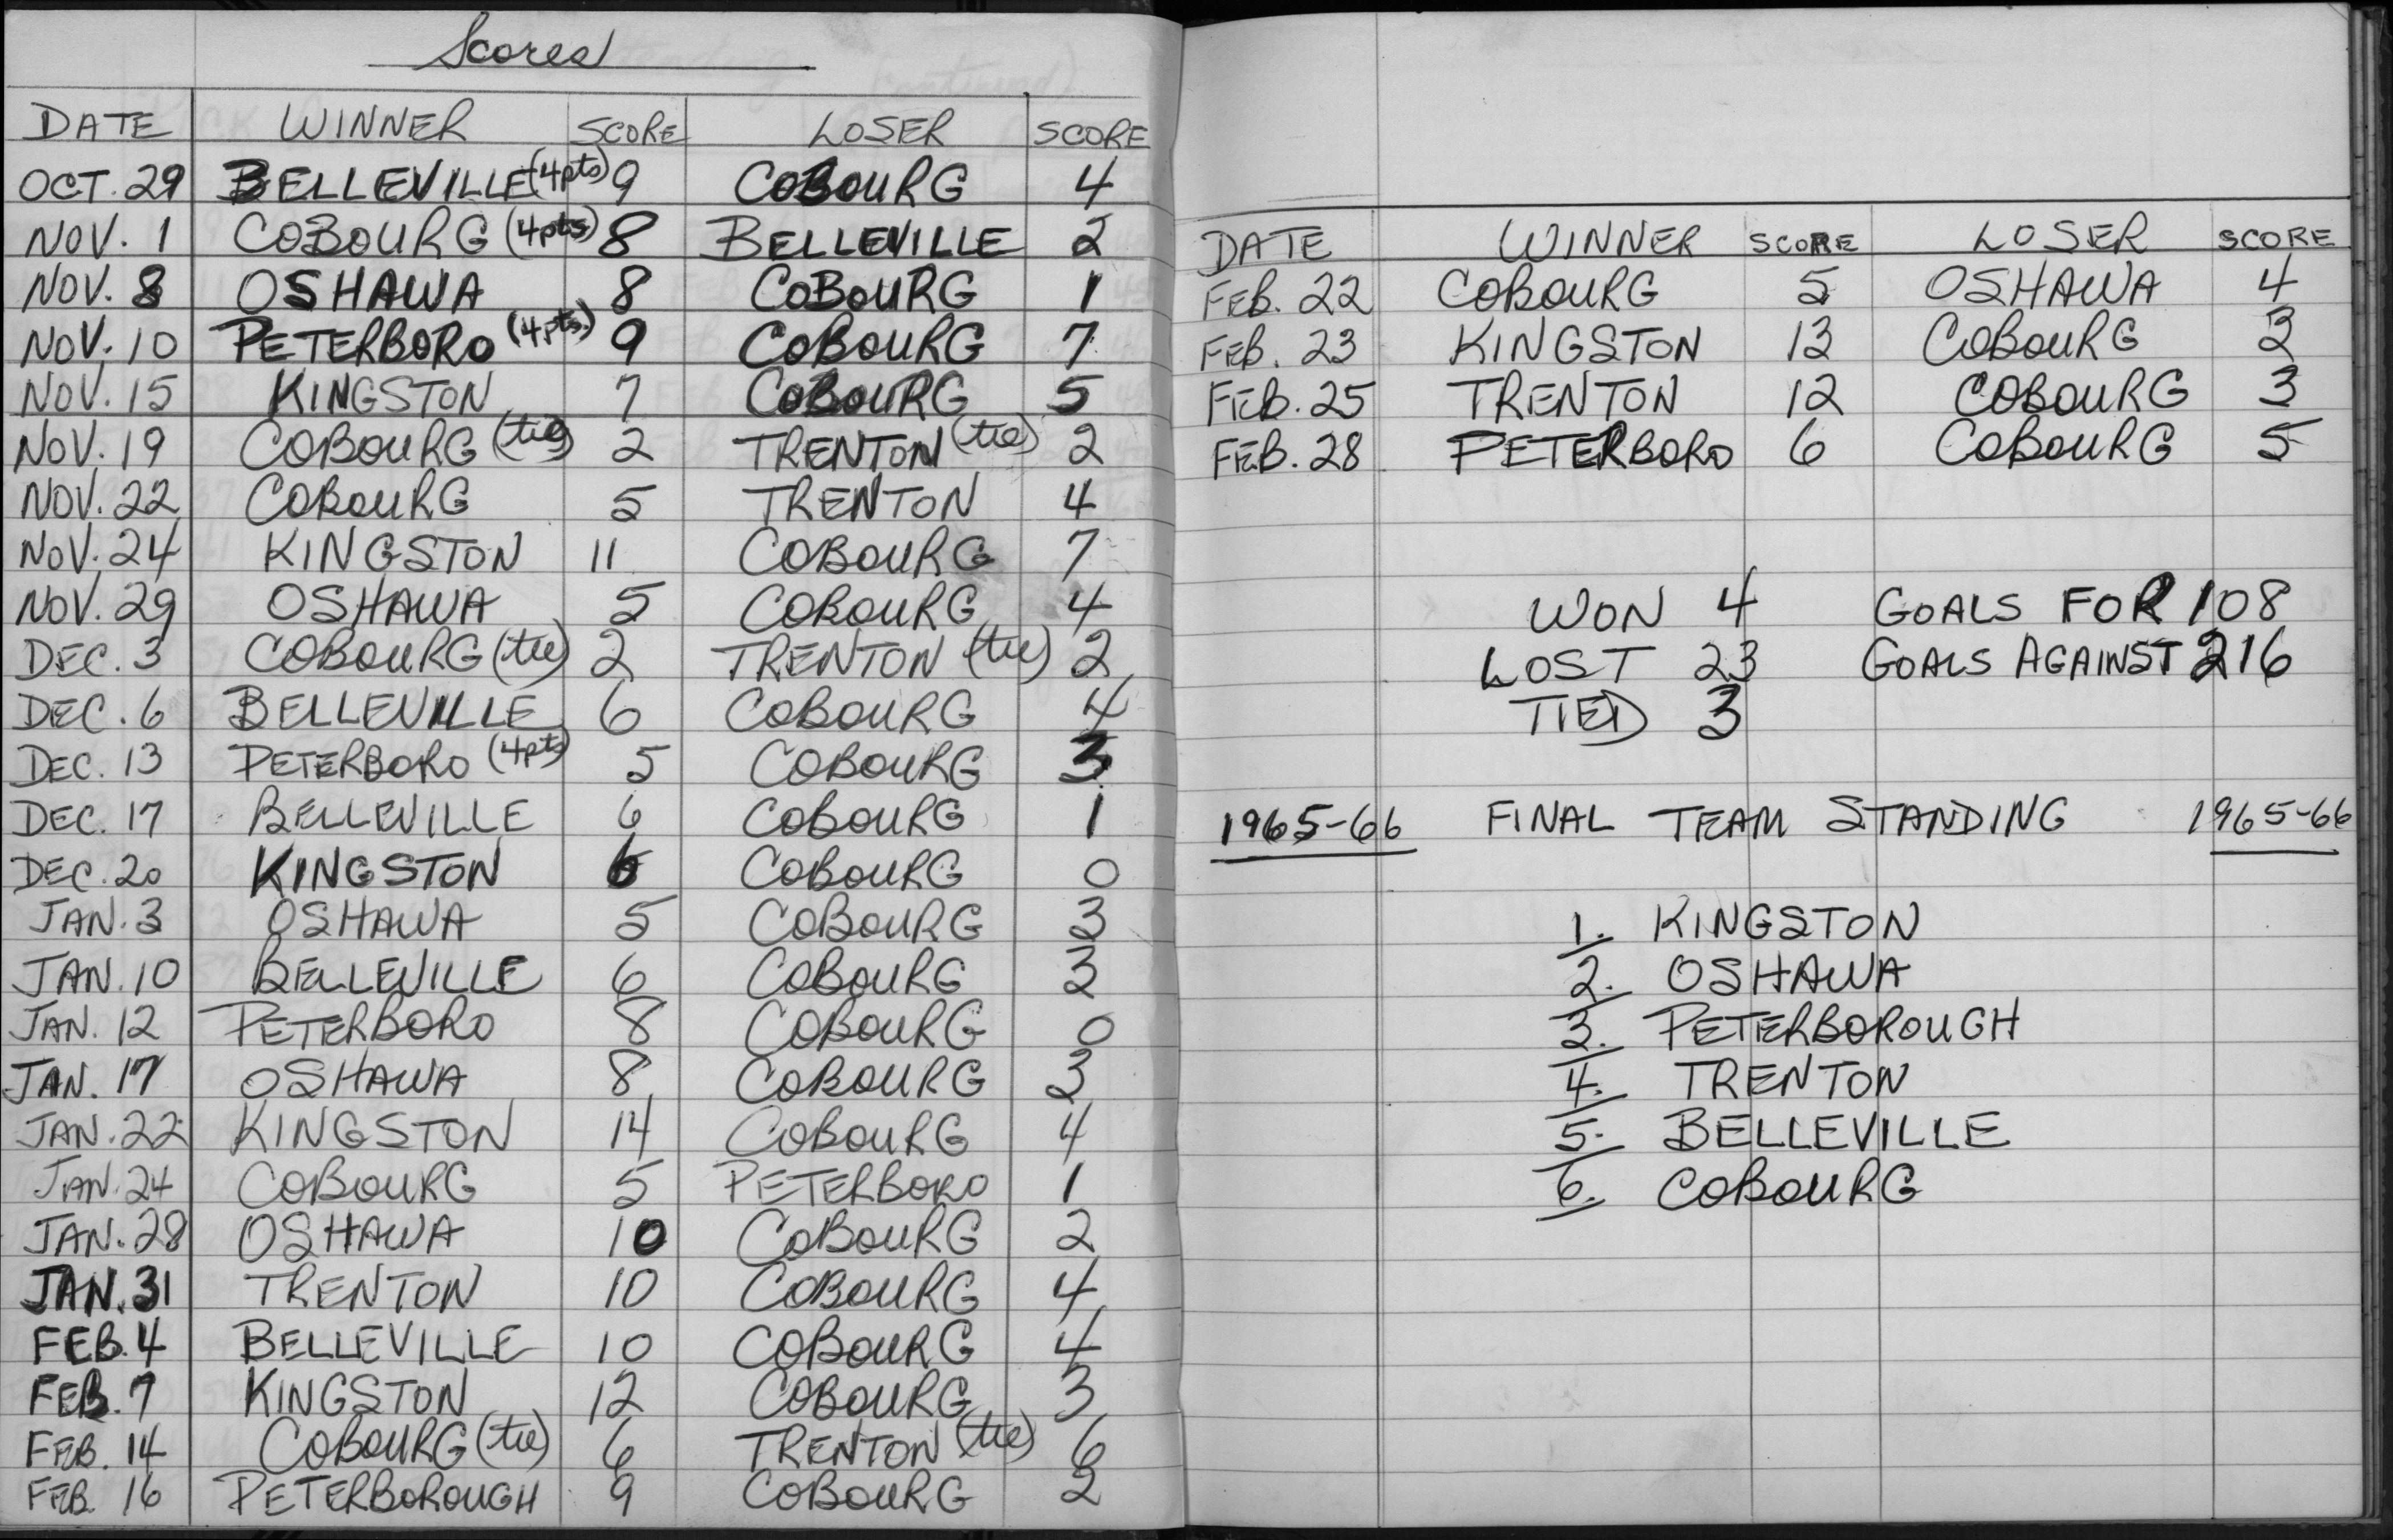 Scores
DATE WINNER SCORE LOSER SCORE
OCT. 29 BELLEVILLE (4pts) 9 COBOURG 4
NOV. 1 COBOURG (4pts.) 8 BELLEVILLE 2
NOV. 8 OSHAWA 8 COBOURG 1
NOV. 10 PETERBORO (4pts.) 9 COBOURG 7
NOV. 15 KINGSTON 7 COBOURG 5
NOV. 19 COBOURG (tie) 2 TRENTON (tie) 2
NOV. 22 COBOURG 5 TRENTON 4
NOV. 24 KINGSTON 11 COBOURG 7
NOV. 29 OSHAWA 5 COBOURG 4
DEC. 3 COBOURG (tie) 2 TRENTON (tie) 2
DEC. 6 BELLEVILLE 6 COBOURG 4
DEC. 13 PETERBORO (4pts) 5 COBOURG 3
DEC. 17 BELLEVILLE 6 COBOURG 1
DEC. 20 KINGSTON 6 COBOURG 0
JAN. 3 OSHAWA 5 COBOURG 3
JAN. 10 BELLEVILLE 6 COBOURG 3
JAN. 12 PETERBORO 8 COBOURG 0
JAN. 17 OSHAWA 8 COBOURG 3
JAN. 22 KINGSTON 14 COBOURG 4
JAN. 24 COBOURG 5 PETERBORO 1
JAN. 28 OSHAWA 10 COBOURG 2
JAN. 31 TRENTON 10 COBOURG 4
FEB. 4 BELLEVILLE 10 COBOURG 4
FEB. 7 KINGSTON 12 COBOURG 3
FEB. 14 COBOURG (tie) 6 TRENTON (tie) 6
FEB. 16 PETERBOROUGH 9 COBOURG 2
DATE WINNER SCORE LOSER SCORE
FEB. 22 COBOURG 5 OSHAWA 4
FEB. 23 KINGSTON 13 COBOURG 3
FEB. 25 TRENTON 12 COBOURG 3
FEB. 28 PETERBORO 6 COBOURG 5
WON 4 GOALS FOR 108
LOST 23 GOALS AGAINST 216
TIED 3
1965-66 FINAL TEAM STANDING 1965-66
1. KINGSTON
2. OSHAWA
3. PETERBOROUGH
4. TRENTON
5. BELLEVILLE
6. COBOURG